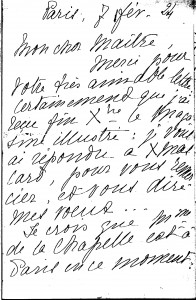 Paris, 7 fév. 24
Mon cher Maître,
Merci pour
votre très aimable lettre
certainement que j'ai
reçu fin Xbre le Maga-
sine illustré : je vous
ai répondu à Xmas
card, pour vous remer-
cier, et vous dire
mes vœux ...
Je crois que Mme
de la Chapelle est à
Paris en ce moment.